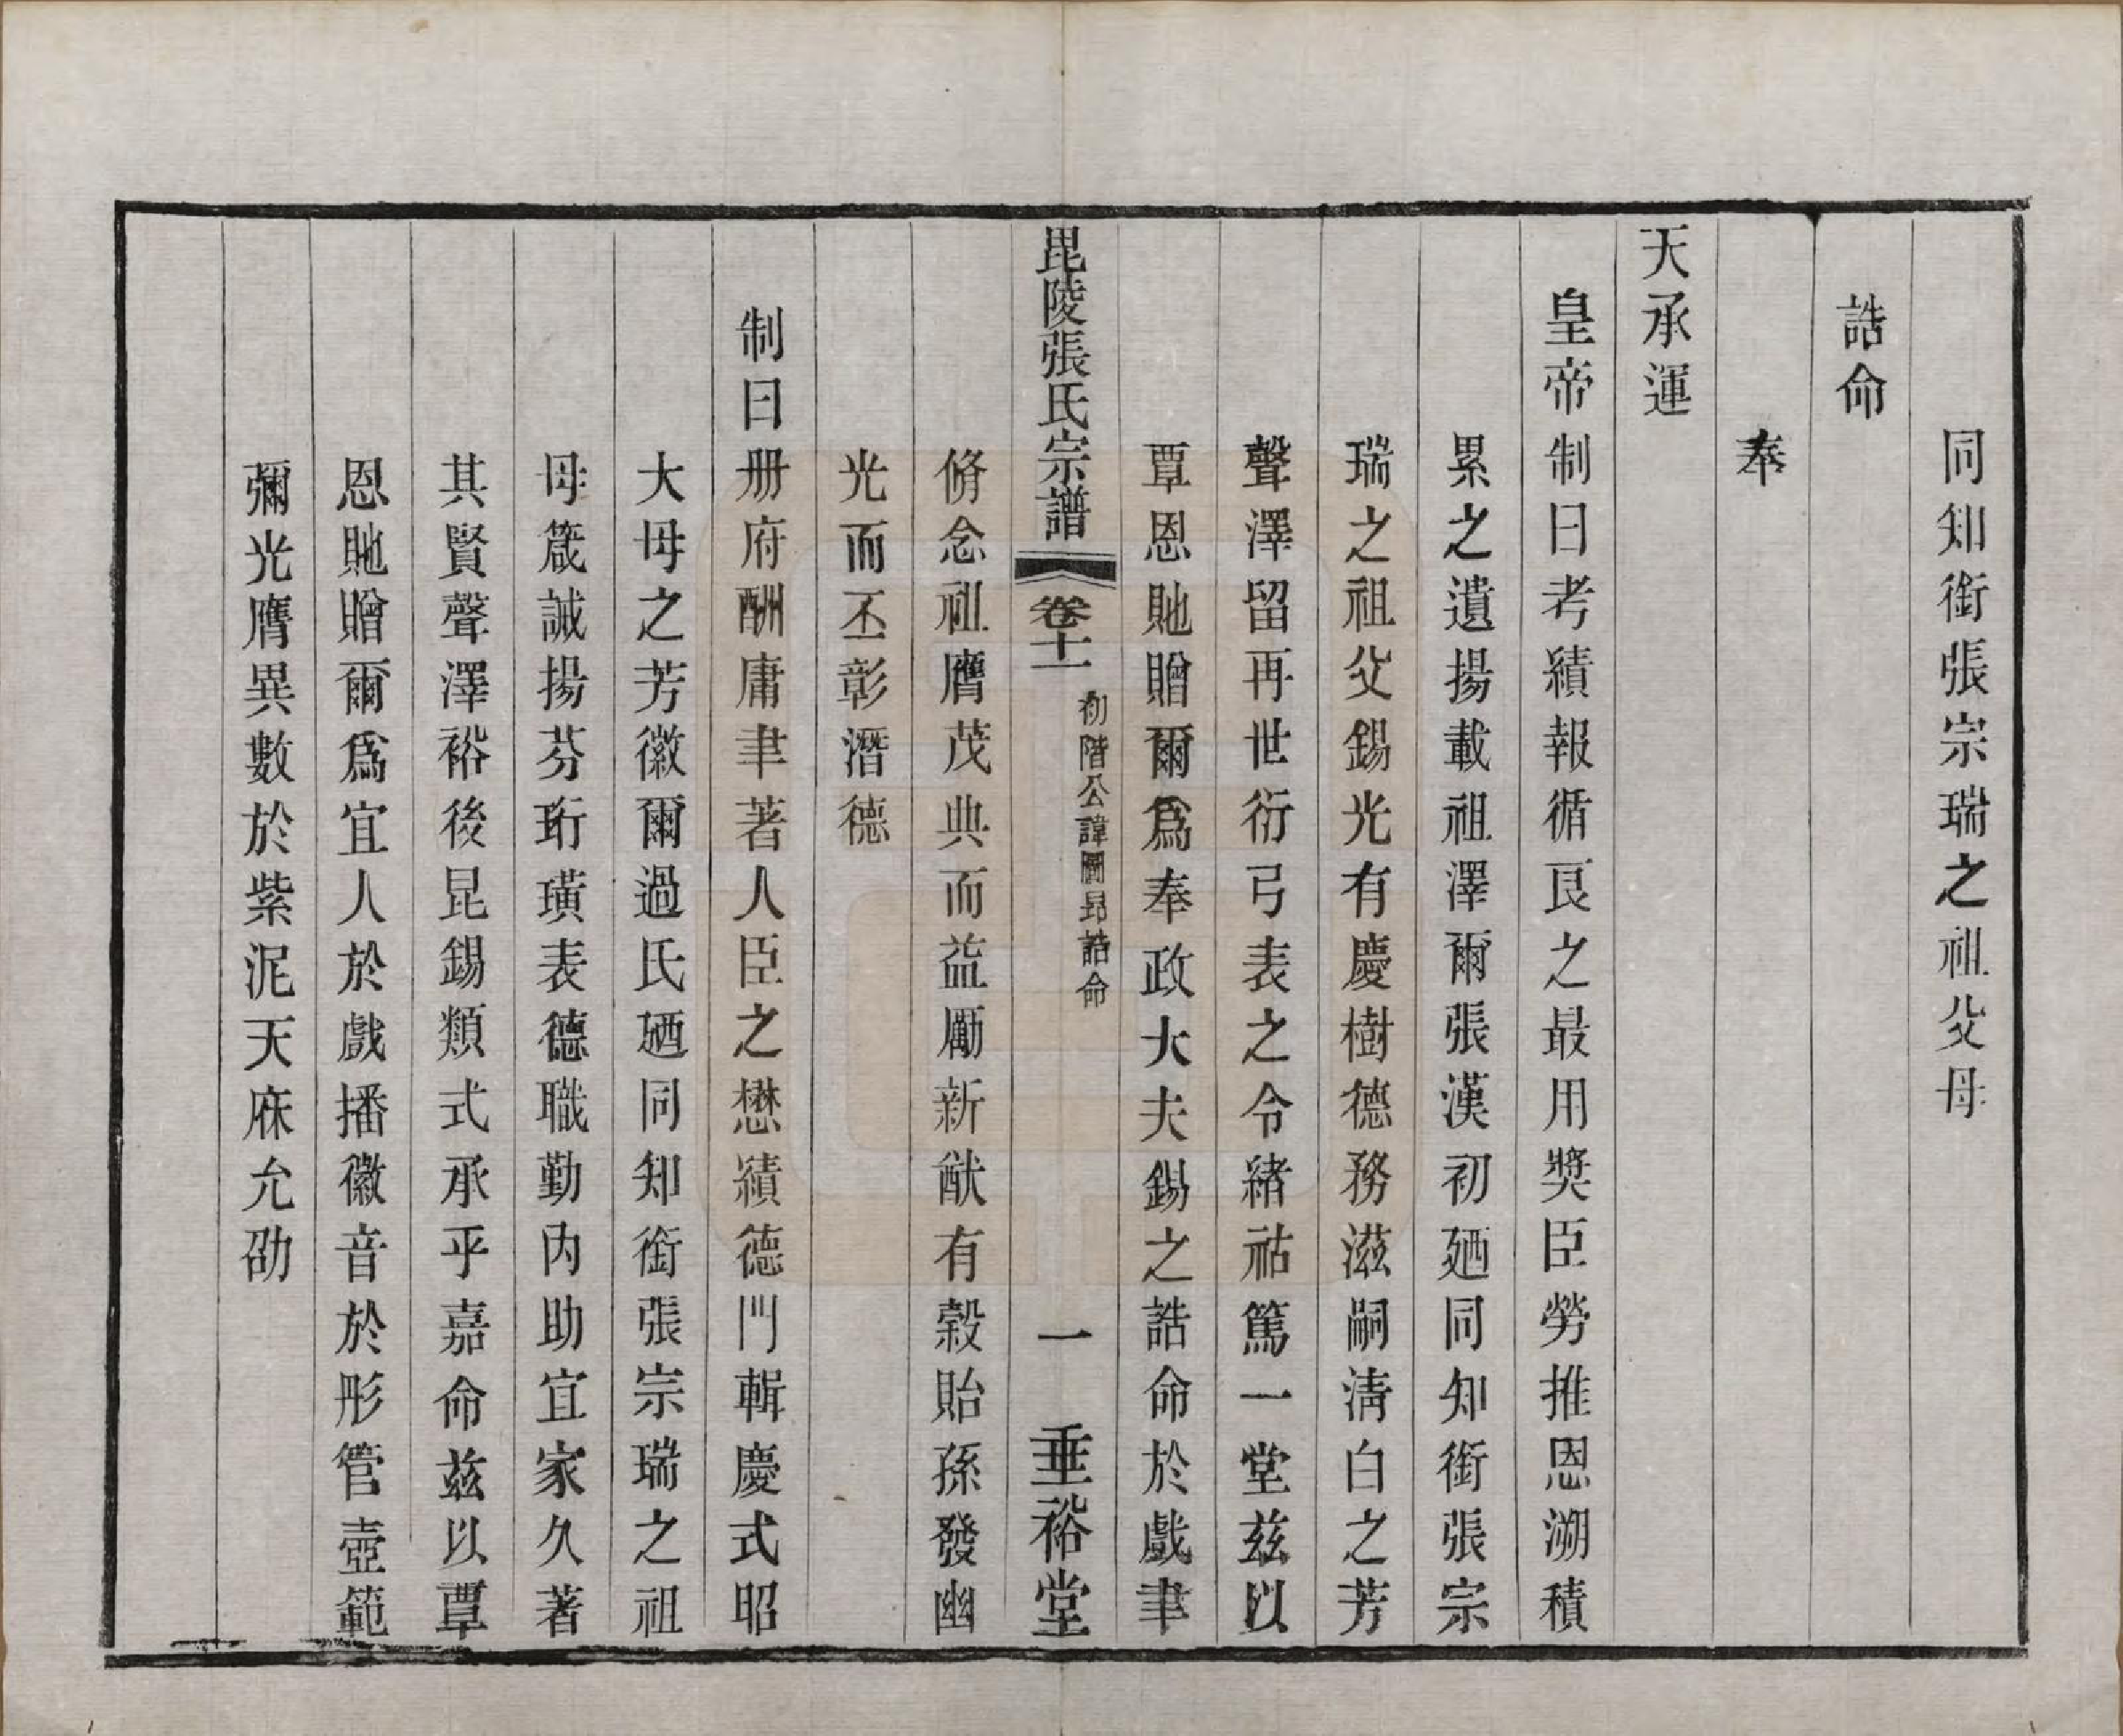 同知銜張宗瑞之祖父母
誥命
奉
天承運
皇帝制曰考績報循良之最用獎臣勞推恩溯積
累之遺揚載祖澤爾張漢初廼同知銜張宗
瑞之祖父錫光有慶樹德務滋嗣淸白之芳
聲澤留再世衍弓表之令緒祜篤一堂茲以
覃恩貤贈爾爲奉政大夫錫之誥命於戲聿
脩念祖膺茂典而益勵新猷有穀貽孫發幽
毘陵張氏宗譜 卷十一 初階公諱圖昂誥命 一 垂裕堂
光而丕彰潛德
制曰册府酬庸聿著人臣之懋績德門輯慶式昭
大母之芳徽爾過氏廼同知銜張宗瑞之祖
母箴誠揚芬珩璜表德職勤內助宜家久著
其賢聲澤裕後昆錫類式承乎嘉命茲以覃
恩貤贈爾爲宜人於戲播徽音於彤管壼範
彌光膺異數於紫泥天庥允劭